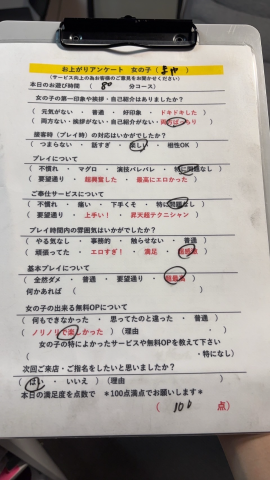 お上がりアンケート 女の子(まや)
(サービス向上の為お客様のご意見をお聞かせください)
本日のお遊び時間 ( 80 分コース)
女の子の第一印象や挨拶・自己紹介はありましたか?
( 元気がない ・ 普通 ・ 好印象 ・ ドキドキした )
( 両方ない・挨拶がない・自己紹介がない・両方ばっちり )
接客時(プレイ時)の対応はいかがでしたか?
( つまらない ・ 話すぎ ・ 楽しい ・ 相性OK )
プレイについて
( 不慣れ ・ マグロ ・ 演技バレバレ ・ 特に問題なし )
( 要望通り ・ 超興奮した ・ 最高にエロかった )
ご奉仕サービスについて
( 不慣れ ・ 痛い ・ 下手くそ ・ 特に問題なし )
( 要望通り ・ 上手い! ・ 昇天超テクニシャン )
プレイ時間内の雰囲気はいかがでしたか?
( やる気なし ・ 事務的 ・ 触らせない ・ 普通 )
( 頑張ってた ・ エロすぎ! ・ 満足 ・ 超感激 )
基本プレイについて
( 全然ダメ ・ 普通 ・ 要望通り ・ 超最高 )
何かあれば ( )
女の子の出来る無料OPについて
( 何もできなかった ・ 思ってたのと違った ・ 普通 )
( ノリノリで楽しかった ) (理由 ・ )
女の子の特によかったサービスや無料OPを教えて下さい
( ・特になし)
次回ご来店・ご指名をしたいと思いましたか?
( はい ・ いいえ ) (理由 )
本日の満足度を点数で *100点満点でお願いします*
( 100 点)